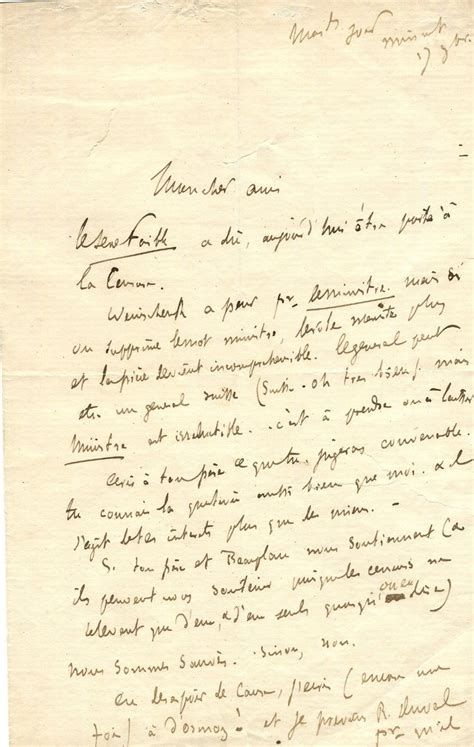 minuit
Mon cher ami
le sexe faible a dû, aujourd'hui être porté à
la Censure.
Weinschenk a peur pr le ministre. mais si
on supprime le mot ministre, le rôle n'existe plus
et la pièce devient incompréhensible. Le général peut
être un général suisse (Suisse. oh très bien) mais
Ministre est irréductible. c'est à prendre ou à laisser
Écris à ton père ce que tu jugeras convenable.
tu connais la question aussi bien que moi. & il
s'agit de tes intérêts plus que des miens. –
Si ton père et Beauplan nous soutiennent (&
ils peuvent nous soutenir puisque les censeurs ne
relèvent que d'eux, & d'eux seuls quoiqu'on en dise)
nous sommes sauvés. Sinon, non.
En désespoir de Cause, j'écris (encore une
fois) à d'osmoy! et je préviens R. Duval
pr qu'il